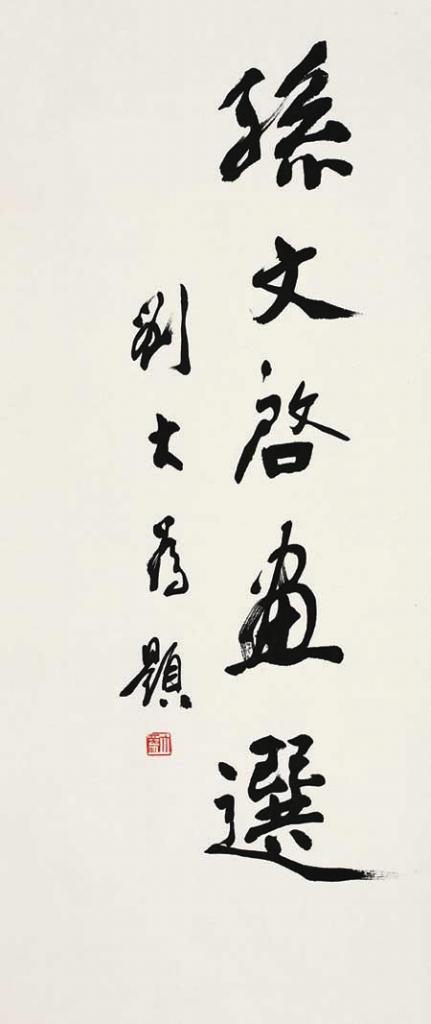 孫文啓畫選
劉大為題